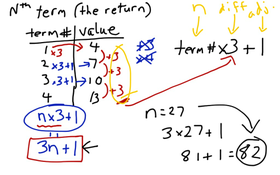 Nth term (the return)
term# value
1 x3 4
2 x3+1 → 7
3 x3+1 → 10
4 13
+3
+3
+3
n x 3+1
=
3n+1
n diff
term# x 3 + 1
n = 27
3 x 27 + 1
81 + 1 = 82